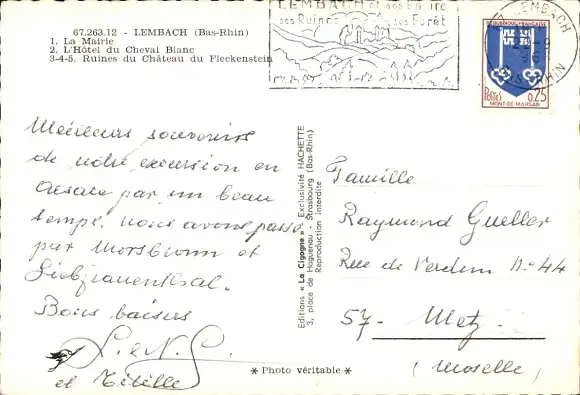 67.263.12 - LEMBACH (Bas-Rhin)
1. La Mairie
2. L'Hôtel du Cheval Blanc
3-4-5. Ruines du Château du Fleckenstein
LEMBACH et ses
ses Ruines Forêt
67 LEMBACH
BAS-RHIN
REPUBLIQUE FRANÇAISE
POSTES 0,25
MONT-DE-MARSAN
Meilleurs souvenirs
de notre excursion en
Alsace par un beau
temps. Nous avons passé
par Morsbronn et
Liebfrauenthal.
Bons baisers
L. & N. G.
et
Editions « La Cigogne » - Exclusivité HACHETTE
3, place de Haguenau - Strasbourg (Bas-Rhin)
Reproduction interdite
Famille
Raymond Gueller
Rue de Verdun No 44
57 - Metz
(Moselle)
* Photo véritable *